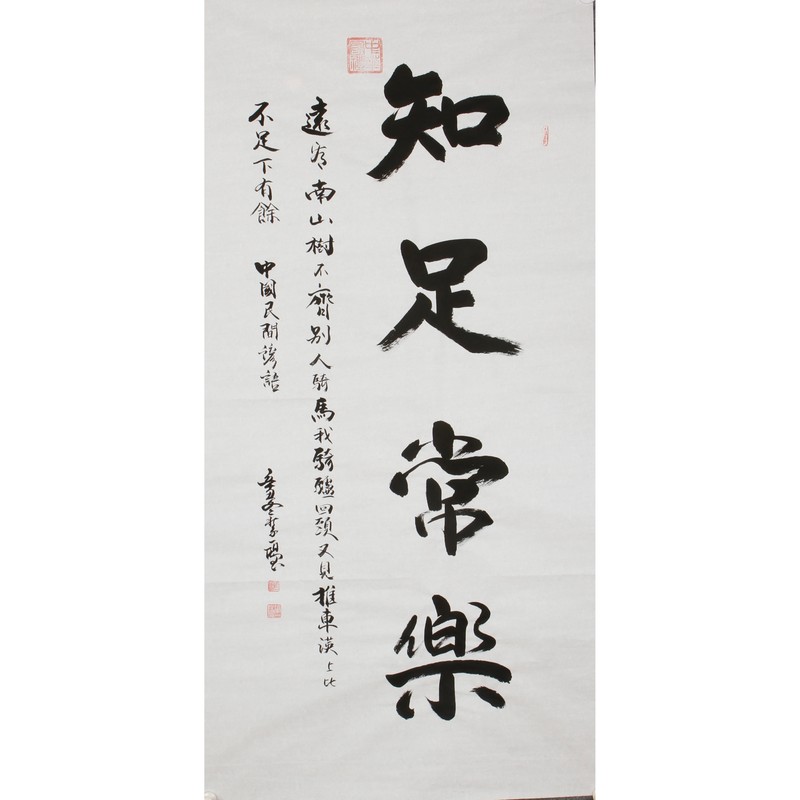 知足常樂
遠看南山樹不齊別人騎馬我騎驢回頭又見推車漢上比
不足下有餘 中國民間諺語
辛丑冬李